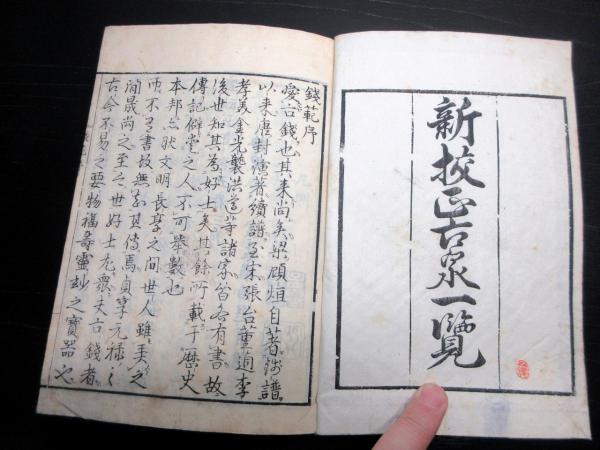 新校正古泉一覧
錢範序
愛古錢也其来尚矣梁顧烜自著錢譜
以来唐封演著續譜至宋張台董逌李
孝美金光襲洪遵等諸家皆各有書故
後世知其為好士矣其餘所載于歴史
傳記僻堂之人不可挙數也
本邦亦状文明長享之間世人雖美之
而不著書故無知其傳焉貞享元禄之
間最尚之至之世好士尤衆夫古錢者
古今不易之要物福壽靈妙之寶器也